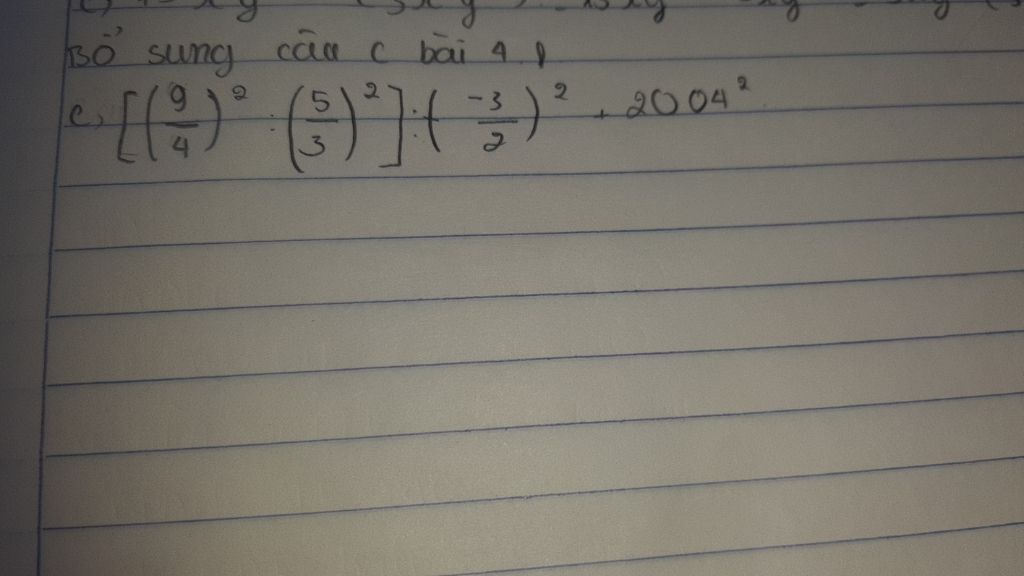 Bổ sung câu c bài 4
c, [(9/4)² : (5/3)²] : (-3/2)² + 2004²